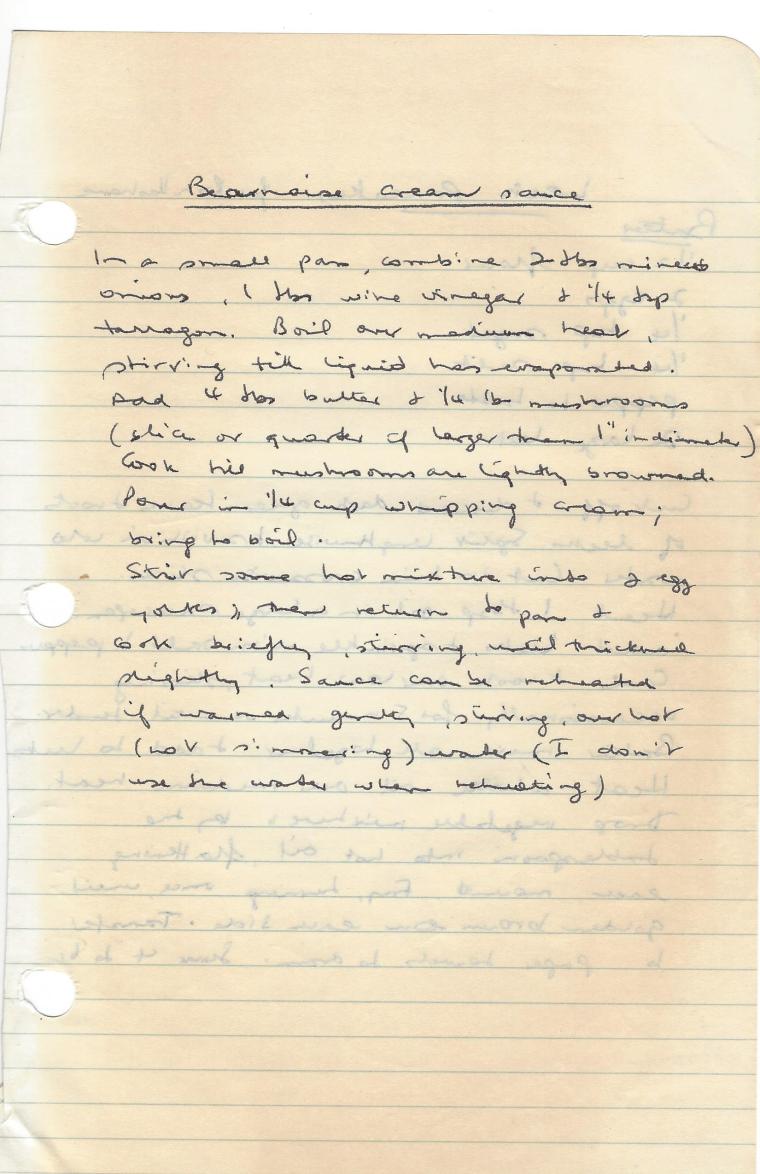 Bearnaise cream sauce
In a small pan, combine 2 tbs minced
onions, 1 tbs wine vinegar & 1/4 tsp
tarragon. Boil over medium heat,
stirring till liquid has evaporated.
Add 4 tbs butter & 1/4 lb mushrooms
(slice or quarter if larger than 1" in diameter)
Cook till mushrooms are lightly browned.
Pour in 1/4 cup whipping cream;
bring to boil.
Stir some hot mixture into 2 egg
yolks; then return to pan &
cook briefly, stirring, until thickened
slightly. Sauce can be reheated
if warmed gently, stirring, over hot
(not simmering) water (I don't
use the water when reheating)